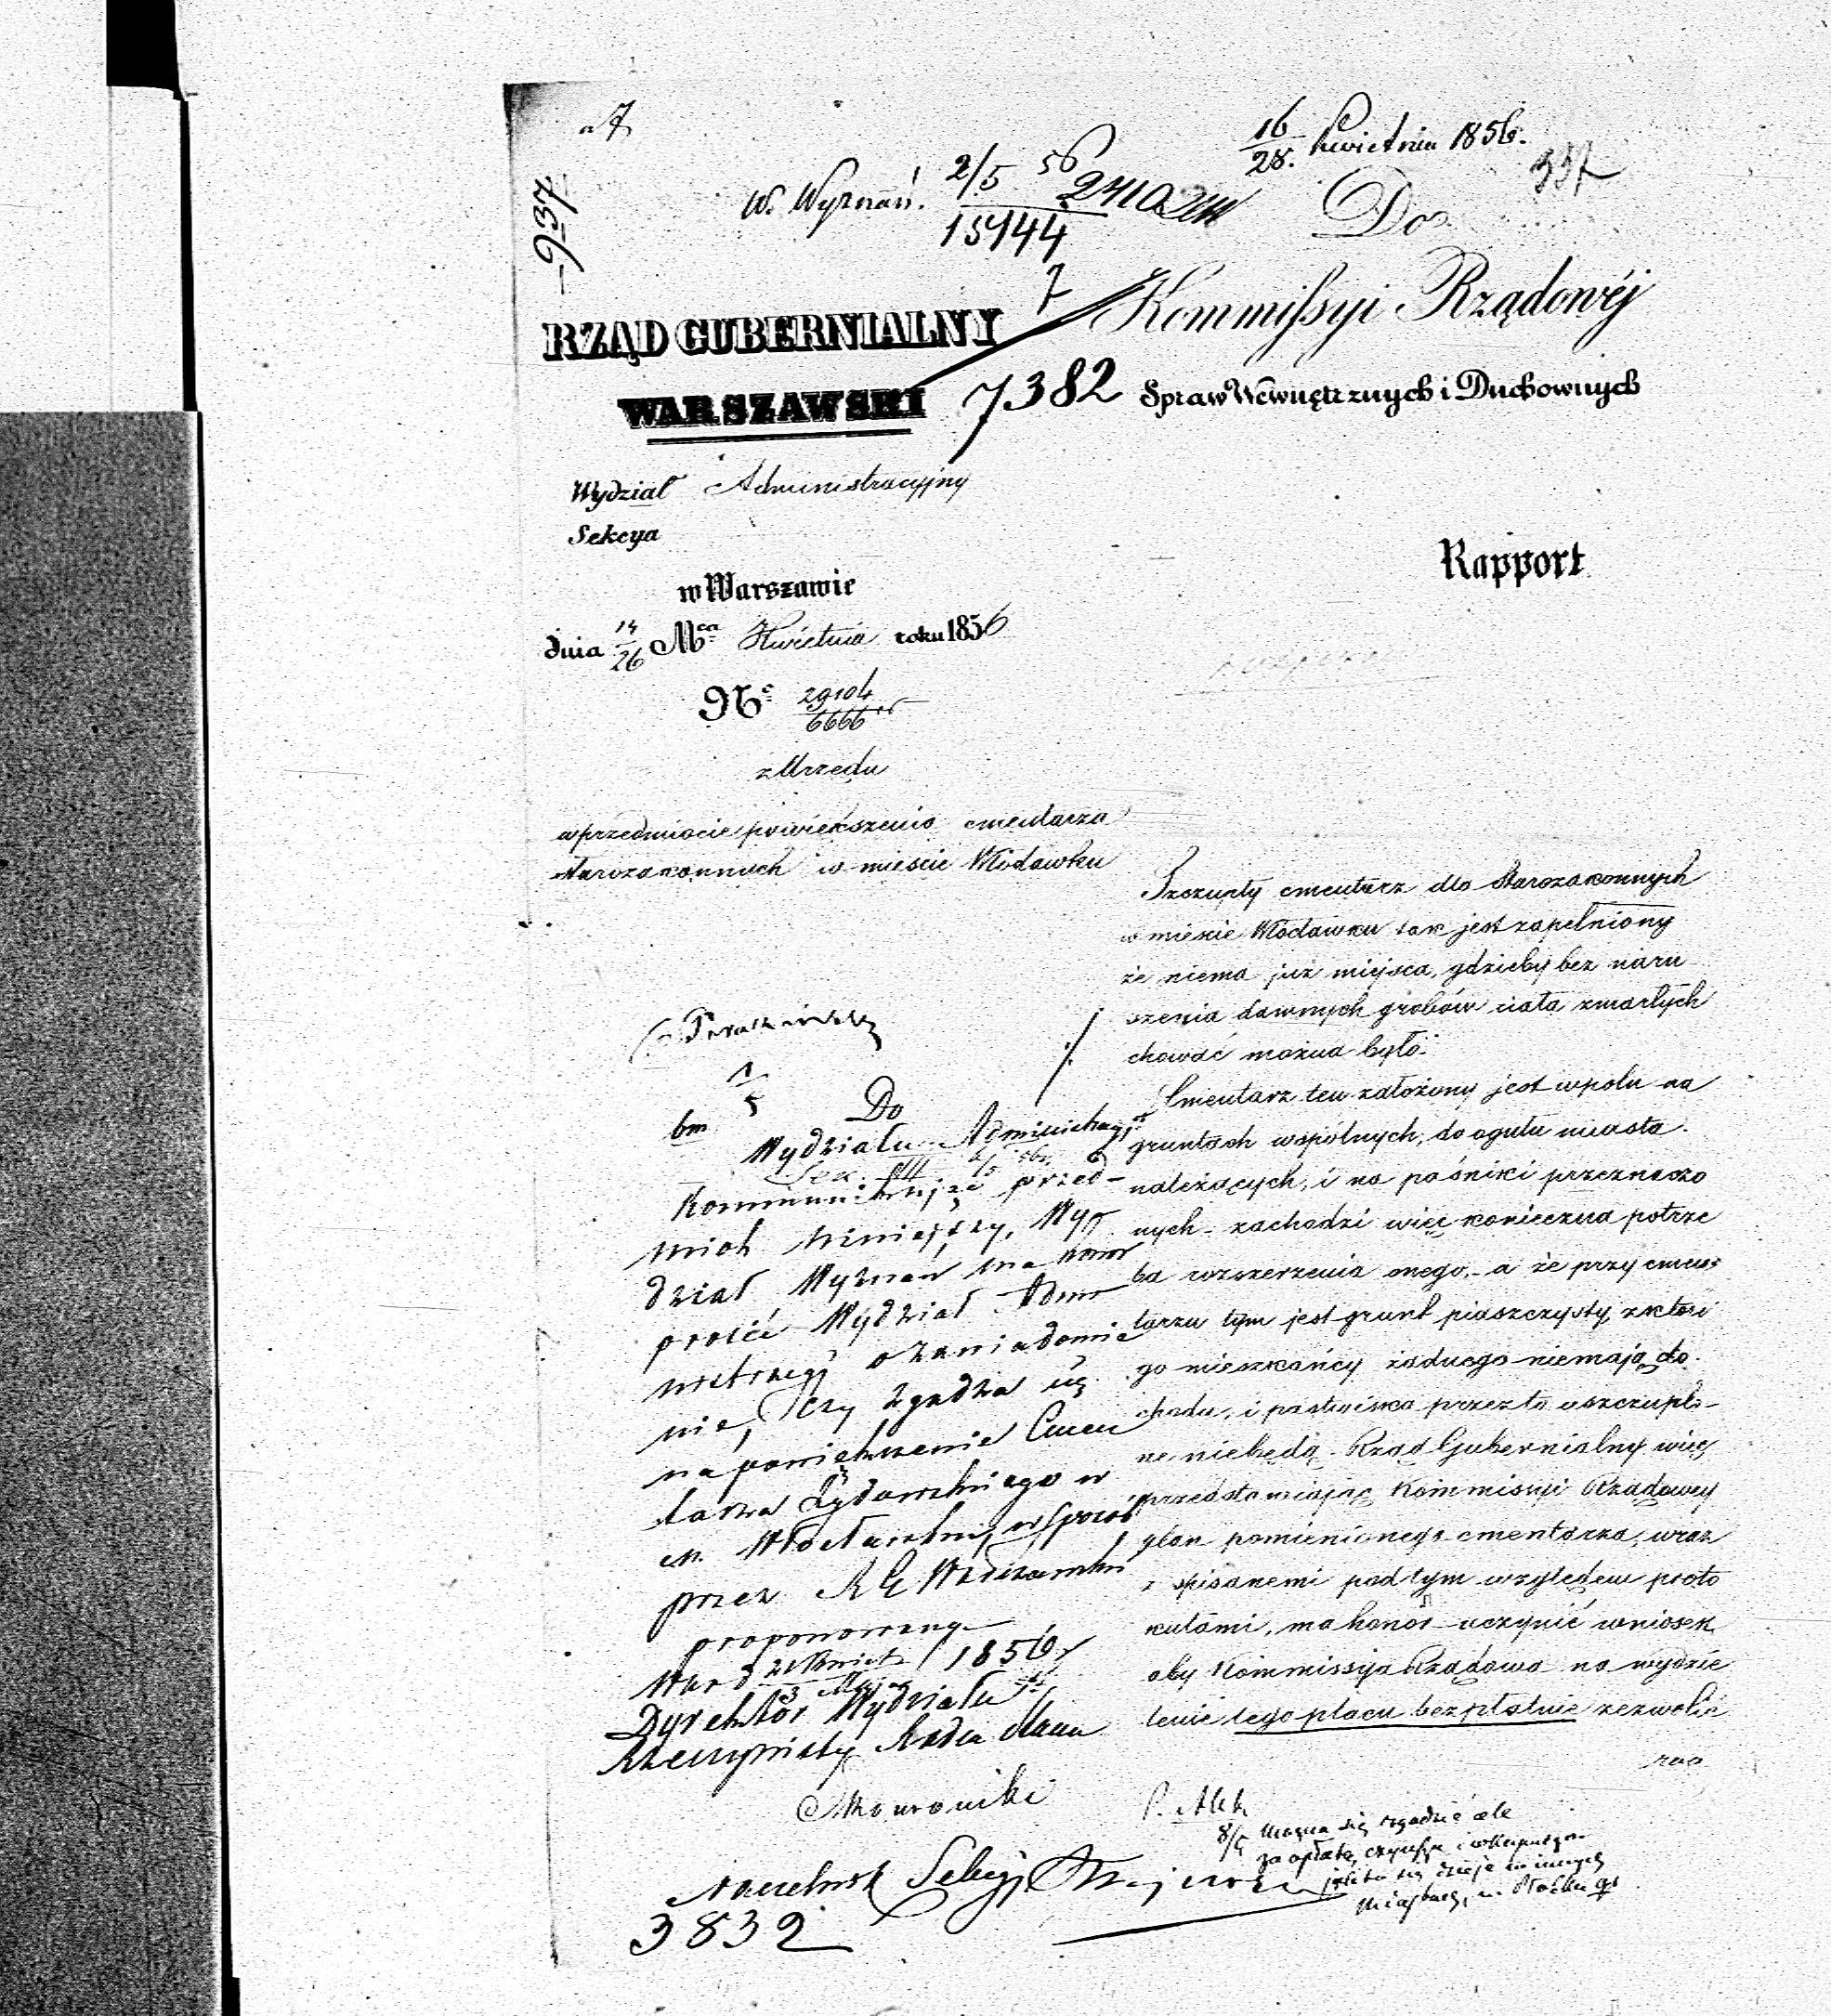 16/28. Kwietnia 1856.
337
W. Wyznań. 2/5 56
15144
937
Do
Kommissyi Rządowéj
7382 Spraw Wewnętrznych i Duchownych
RZĄD GUBERNIALNY
WARSZAWSKI
Wydział Administracyjny
Sekcya
w Warszawie
dnia 14/26 Mca Kwietnia roku 1856
No 29104/6666
z Urzędu
Rapport
w przedmiocie powiekszenia cmentarza
starozakonnych w mieście Włocławku
Szczupły cmentarz dla Starozakonnych
w mieście Włocławku tak jest zapełniony
że niema już miejsca, gdzieby bez naru
szenia dawnych grobów ciała zmarłych
chować można było.
Cmentarz ten założony jest w polu na
gruntach wspólnych, do ogółu miasta
należących, i na paśniki przeznaczo
nych - zachodzi więc konieczna potrze
ba rozszerzenia onego, - a że przy cmen
tarzu tym jest grunt piaszczysty, z które
go mieszkańcy żadnego niemają do
chodu, i pastwiska przez to uszczuplo-
ne niebędą - Rząd Gubernialny więc
przedstawiając Kommissyi Rządowey
plan pomienionego cmentarza, wraz
z spisanemi pod tym względem proto
kułami, ma honor uczynić wniosek
aby Kommissya Rządowa na wydzie
lenie tego placu bezpłatnie zezwolić
raz
1/5
bm
Do
Wydziału Administracyj
Kommunikując przed-
miot niniejszy, Wy
dział Wyznań ma honor
prosić Wydział Admi
nistracyj o zawiadomie
nie, czy zgadza się
na powiększenie Cmen
tarza Żydowskiego w
m. Włocławku, w sposób
przez RG Warszawski
proponowany
War d 21 Kwiet/3 Maja 1856 r
Dyrektor Wydziału
Rzeczywisty Radca Stanu
Naczelnik Sekcyj
3832
8/5 można się zgodzić ale
za opłatą czynszu i wkupnego
jak to się dzieje w innych
miastach, n. Płocku